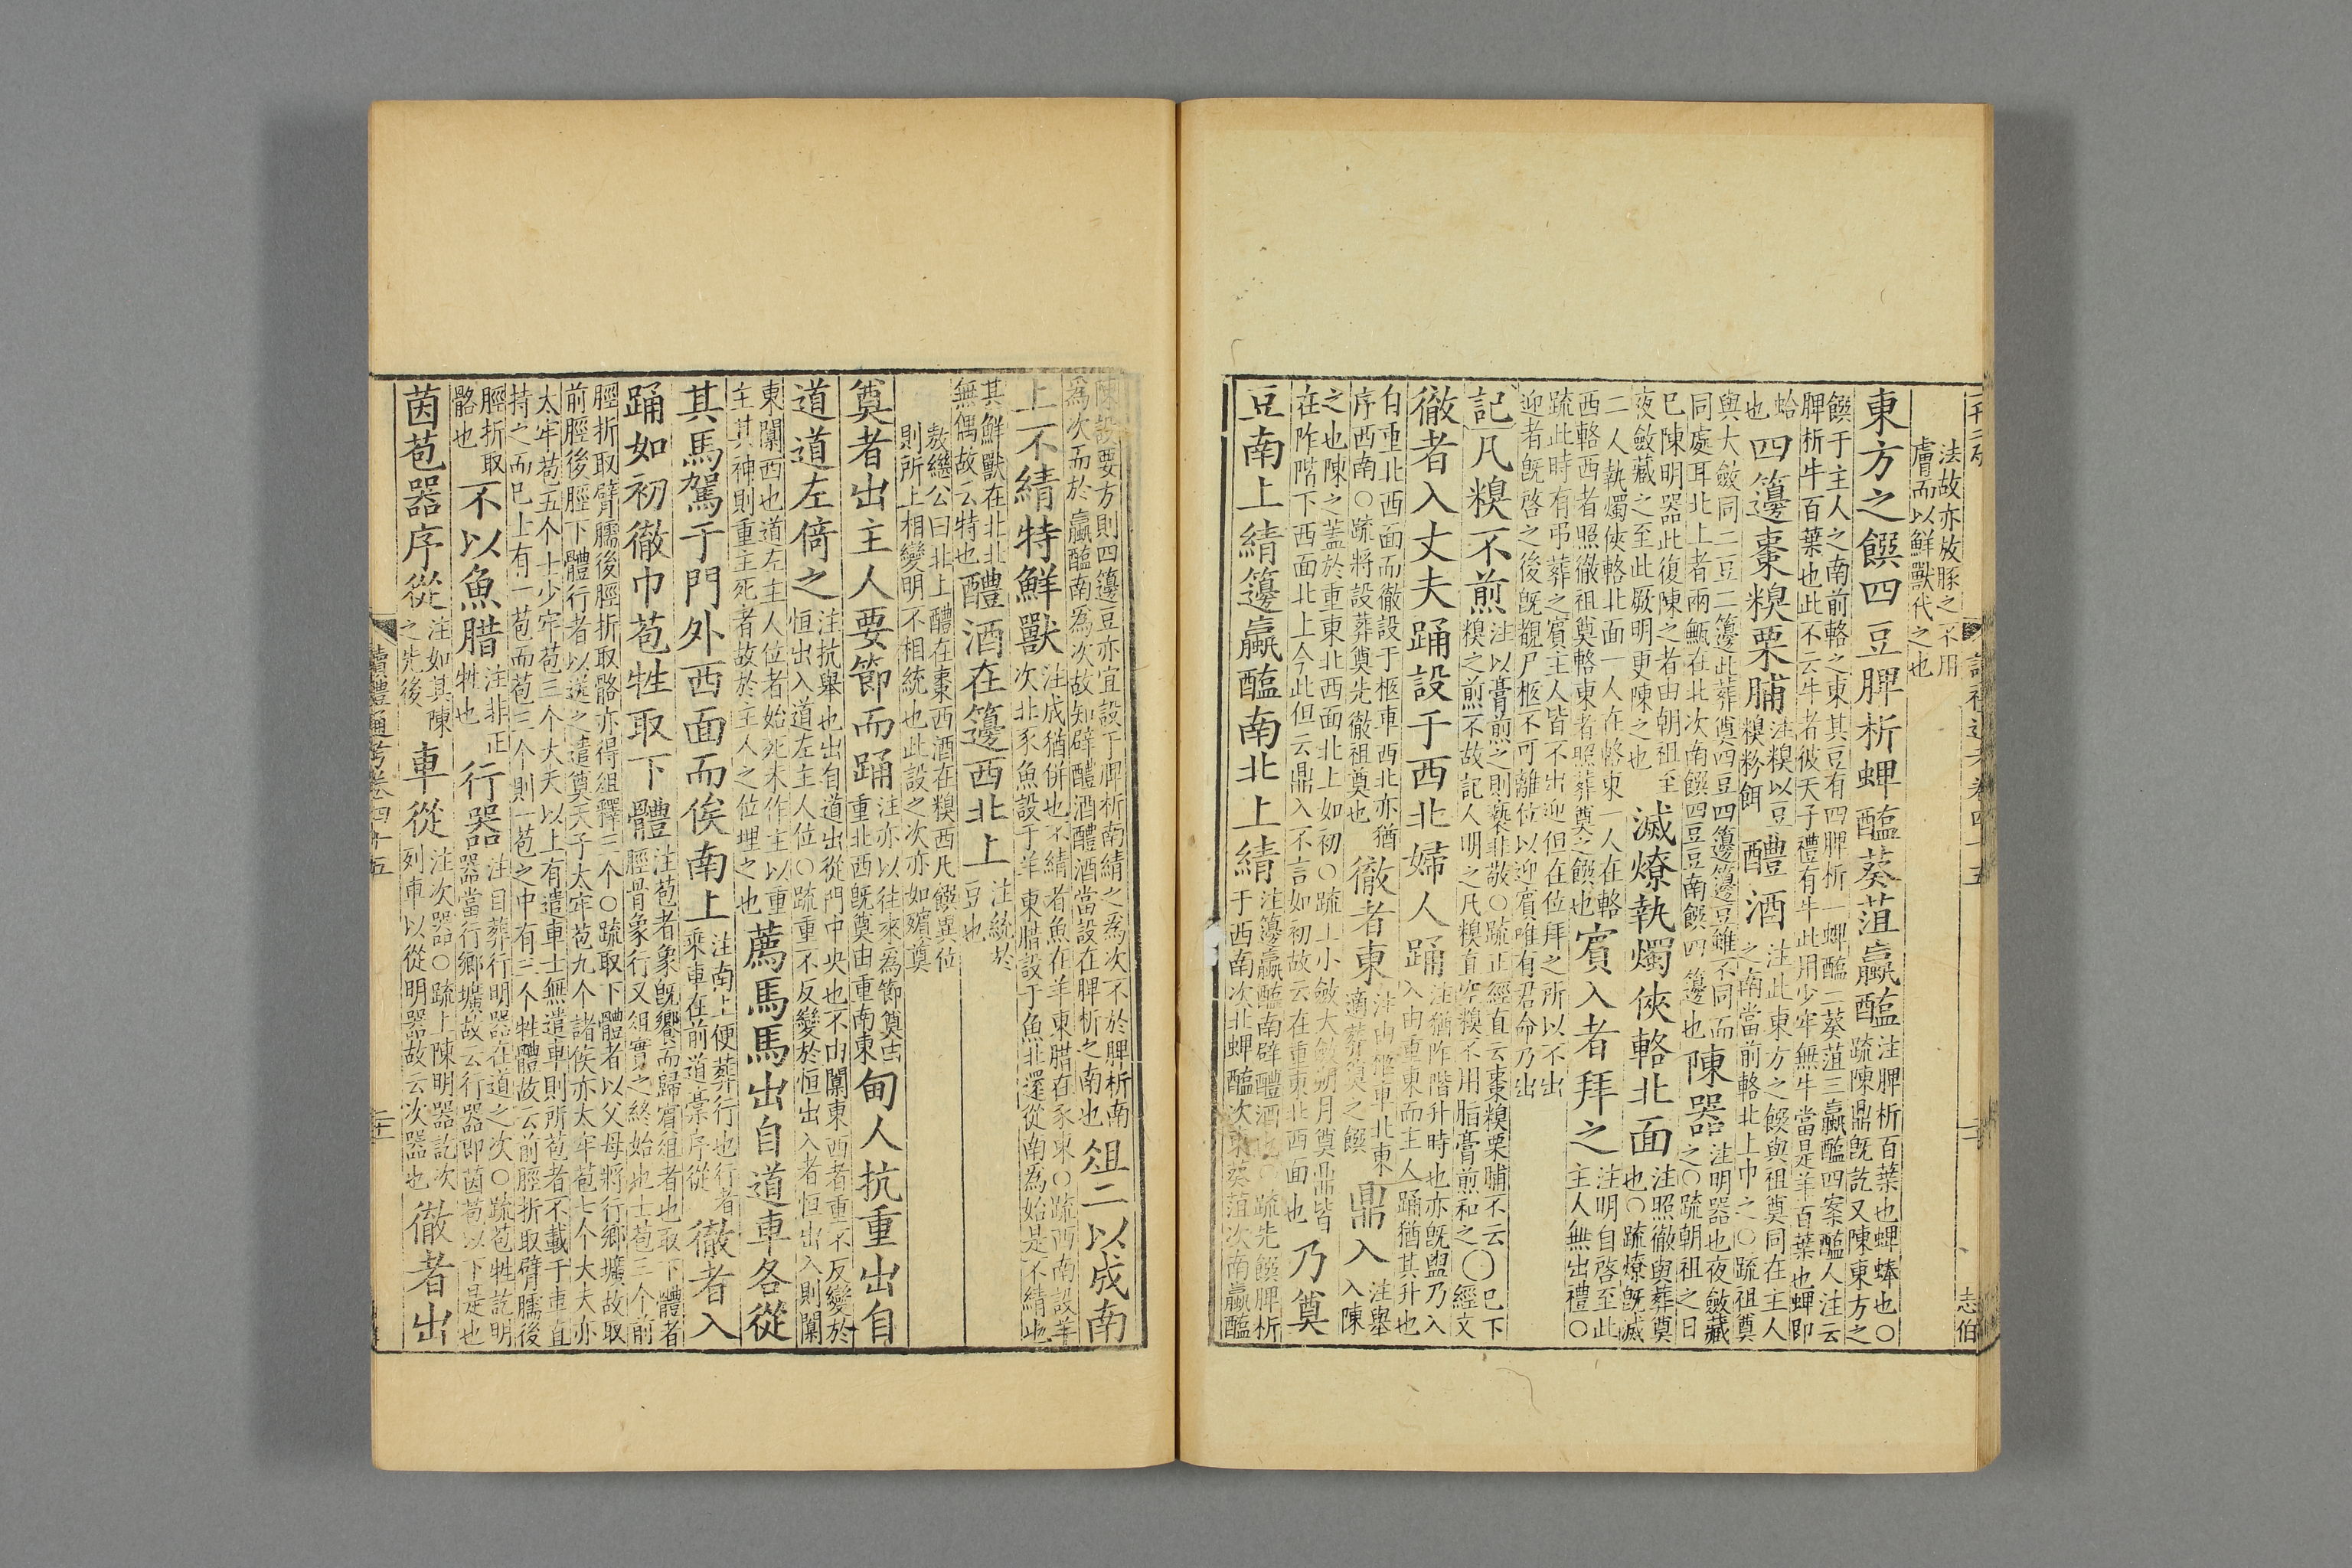 讀禮通考卷四十五
二十
志伯
法故亦放豚之不用
膚而以鮮獸代之也
東方之饌四豆脾析蜱醢葵菹蠃醢
注脾析百葉也蜱蜯也○
疏陳鼎旣訖又陳東方之
饌于主人之南前輅之東其豆有四脾析一蜱醢二葵菹三蠃醢四案醢人注云
脾析牛百葉也此不云牛者彼天子禮有牛此用少牢無牛當是羊百葉也蜱即
蛤
也
四籩棗糗栗脯
注糗以豆
糗粉餌
醴酒
注此東方之饌與祖奠同在主人
之南當前輅北上巾之○疏祖奠
與大斂同二豆二籩此葬奠四豆四籩籩豆雖不同而
同處耳北上者兩甒在北次南饌四豆豆南饌四籩也
陳器
注明器也夜斂藏
之○疏朝祖之日
已陳明器此復陳之者由朝祖至
夜斂藏之至此厥明更陳之也
滅燎執燭俠輅北面
注照徹與葬奠
也○疏燎旣滅
二人執燭俠輅北面一人在輅東一人在輅
西輅西者照徹祖奠輅東者照葬奠之饌也
賓入者拜之
注明自啓至此
主人無出禮○
疏此時有弔葬之賓主人皆不出迎但在位拜之所以不出
迎者旣啓之後旣覩尸柩不可離位以迎賓唯有君命乃出
記凡糗不煎
注以膏煎之則褻非敬○疏正經直云棗糗栗脯不云
糗之煎不故記人明之凡糗直空糗不用脂膏煎和之
○已下
經文
徹者入丈夫踊設于西北婦人踊
注猶阼階升時也亦旣盥乃入
入由重東而主人踊猶其升也
自重北西面而徹設于柩車西北亦猶
序西南○疏將設葬奠先徹祖奠也
徹者東
注由柩車北東
適葬奠之饌
鼎入
注舉
入陳
之也陳之蓋於重東北西面北上如初○疏上小斂大斂朔月奠鼎皆
在阼階下西面北上今此但云鼎入不言如初故云在重東北西面也
乃奠
豆南上綪籩蠃醢南北上綪
注籩蠃醢南辟醴酒也○疏先饌脾析
于西南次北蜱醢次東葵菹次南蠃醢
陳設要方則四籩豆亦宜設于脾析南綪之爲次不於脾析南
爲次而於蠃醢南爲次故知辟醴酒醴酒當設在脾析之南也
俎二以成南
上不綪特鮮獸
注成猶併也不綪者魚在羊東腊在豕東○疏西南設羊
次北豕魚設于羊東腊設于魚北還從南爲始是不綪也
其鮮獸在北北
無偶故云特也
醴酒在籩西北上
注統於
豆也
敖繼公曰北上醴在棗西酒在糗西凡饌異位
則所上相變明不相統也此設之次亦如殯奠
奠者出主人要節而踊
注亦以往來爲節奠由
重北西旣奠由重南東
甸人抗重出自
道道左倚之
注抗舉也出自道出從門中央也不由闑東西者重不反變於
恒出入道左主人位○疏重不反變於恒出入者恒出入則闑
東闑西也道左主人位者始死未作主以重
主其神則重主死者故於主人之位埋之也
薦馬馬出自道車各從
其馬駕于門外西面而俟南上
注南上便葬行也行者
乘車在前道槀序從
徹者入
踊如初徹巾苞牲取下體
注苞者象旣饗而歸賓俎者也取下體者
脛骨象行又俎實之終始也士苞三个前
脛折取臂臑後脛折取骼亦得俎釋三个○疏取下體者以父母將行鄉壙故取
前脛後脛下體行者以送之遣奠天子太牢苞九个諸侯亦太牢苞七个大夫亦
太牢苞五个士少牢苞三个大夫以上有遣車士無遣車則所苞者不載于車直
持之而已上有一苞而苞三个則一苞之中有三个牲體故云前脛折取臂臑後
脛折取
骼也
不以魚腊
注非正
牲也
行器
注目葬行明器在道之次○疏苞牲訖明
器當行鄉壙故云行器即茵苞以下是也
茵苞器序從
注如其陳
之先後
車從
注次器○疏上陳明器訖次
列車以從明器故云次器也
徹者出
讀禮通考卷四十五